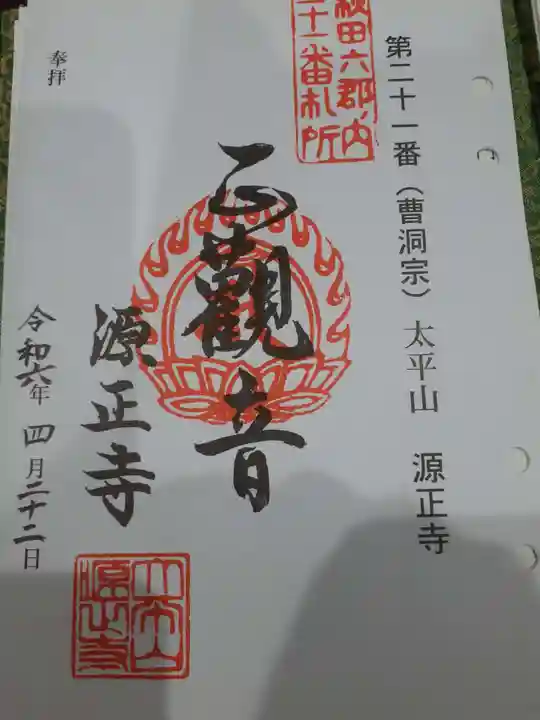 第二十一番（曹洞宗）太平山 源正寺
秋田六郡ノ内
二十一番札所
奉拝
正觀音
源正寺
令和六年四月二十二日
太平山
源正寺